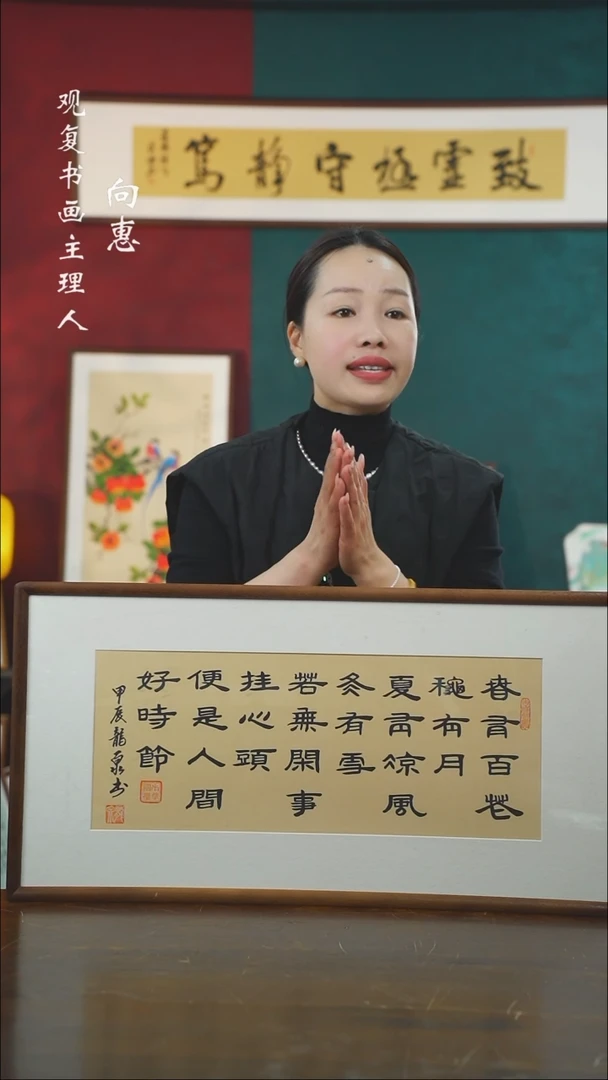 观复书画主理人
向惠
致虛極守靜篤
春有百花
穐有月
夏有凉風
冬有雪
若無閑事
挂心頭
便是人間
好時節
甲辰龍泉书